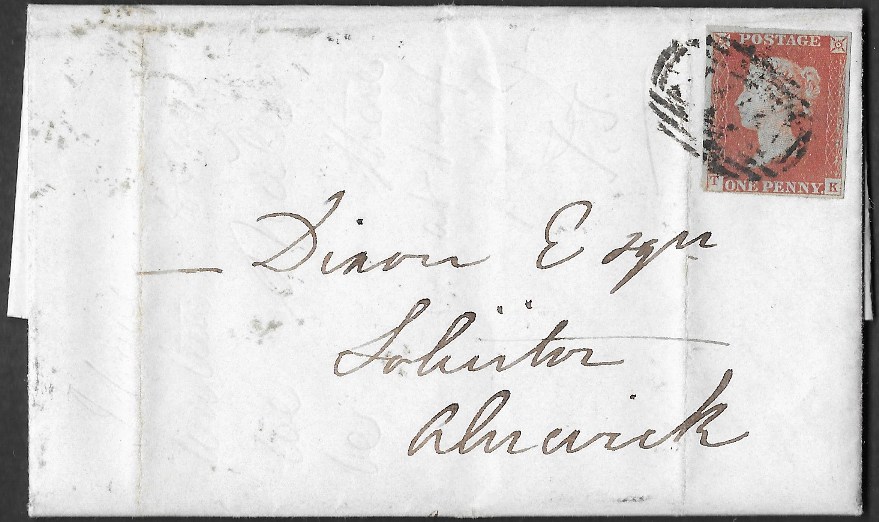 POSTAGE
T ONE PENNY K
— Dixon Esqr
Solicitor
Alnwick